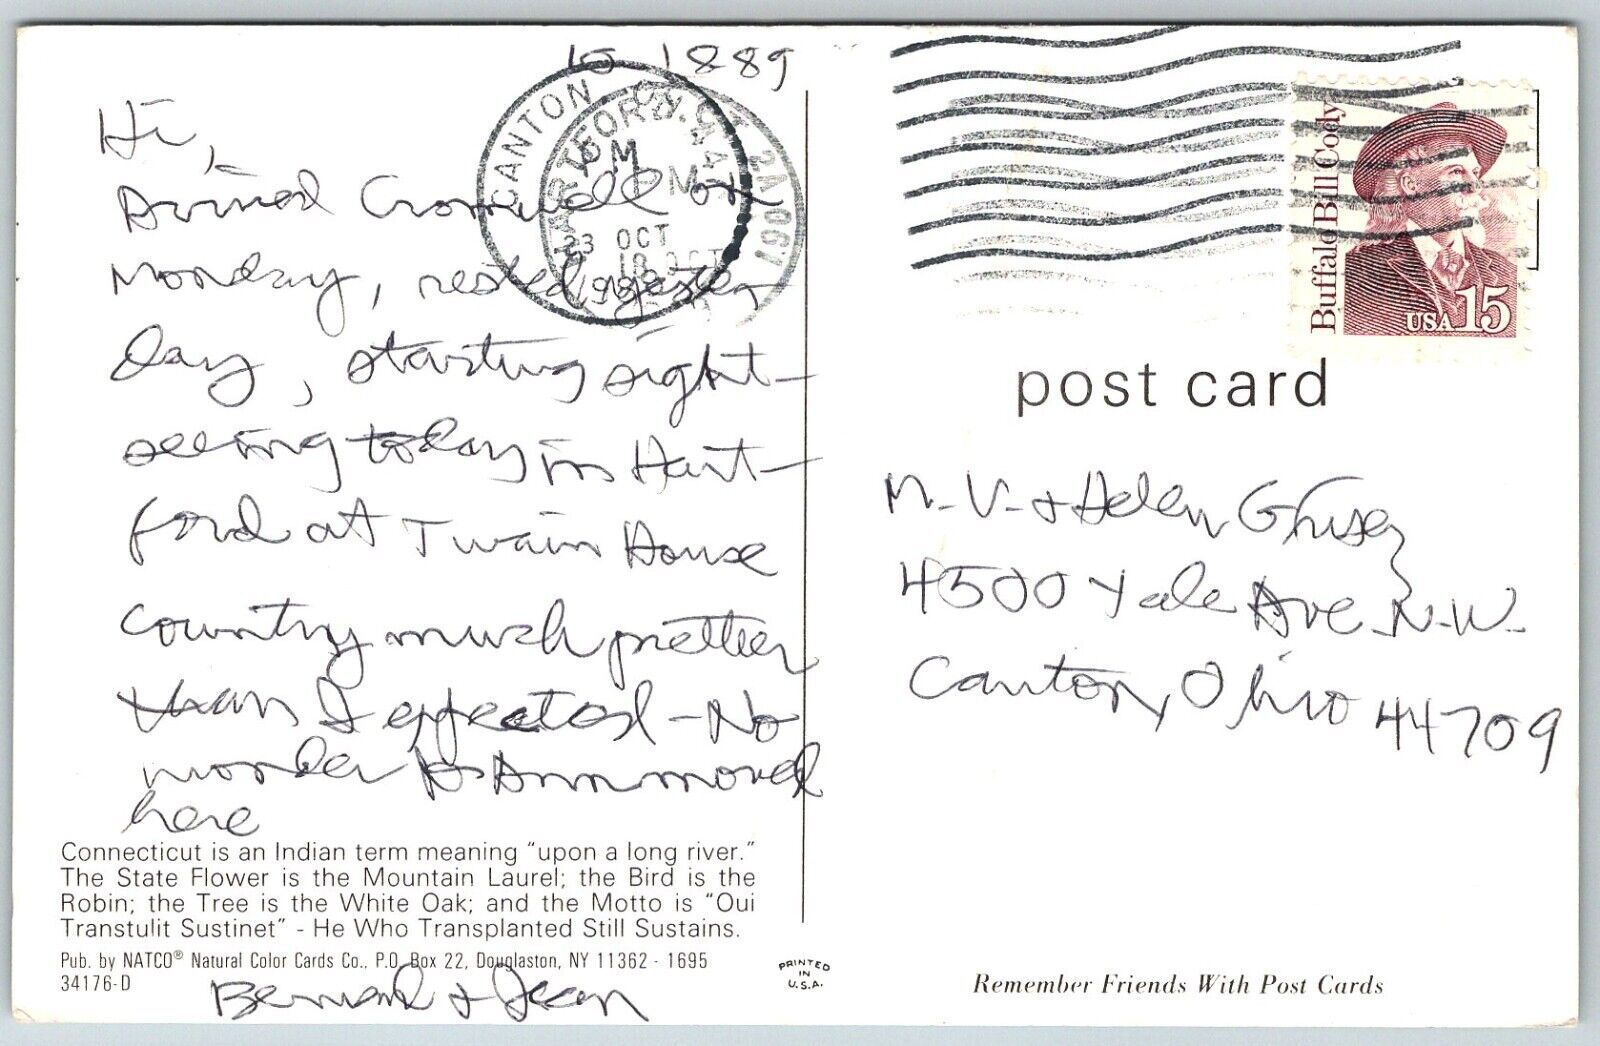 10-1889
Hi,
Arrived Cromwell on
Monday, rested yester
day, starting sight-
seeing today in Hart-
ford at Twain House
Country much prettier
than I expected - No
wonder Ann moved
here
Connecticut is an Indian term meaning "upon a long river."
The State Flower is the Mountain Laurel; the Bird is the
Robin; the Tree is the White Oak; and the Motto is "Oui
Transtulit Sustinet" - He Who Transplanted Still Sustains.
Pub. by NATCO® Natural Color Cards Co., P.O. Box 22, Douglaston, NY 11362 - 1695
34176-D
Bernard & Jean
PRINTED
IN
U.S.A.
CANTON
HARTFORD
PM
23 OCT
18 OCT
Buffalo Bill Cody
USA 15
post card
M.V. & Helen
4500 Yale Ave. N.W.
Canton, Ohio 44709
Remember Friends With Post Cards